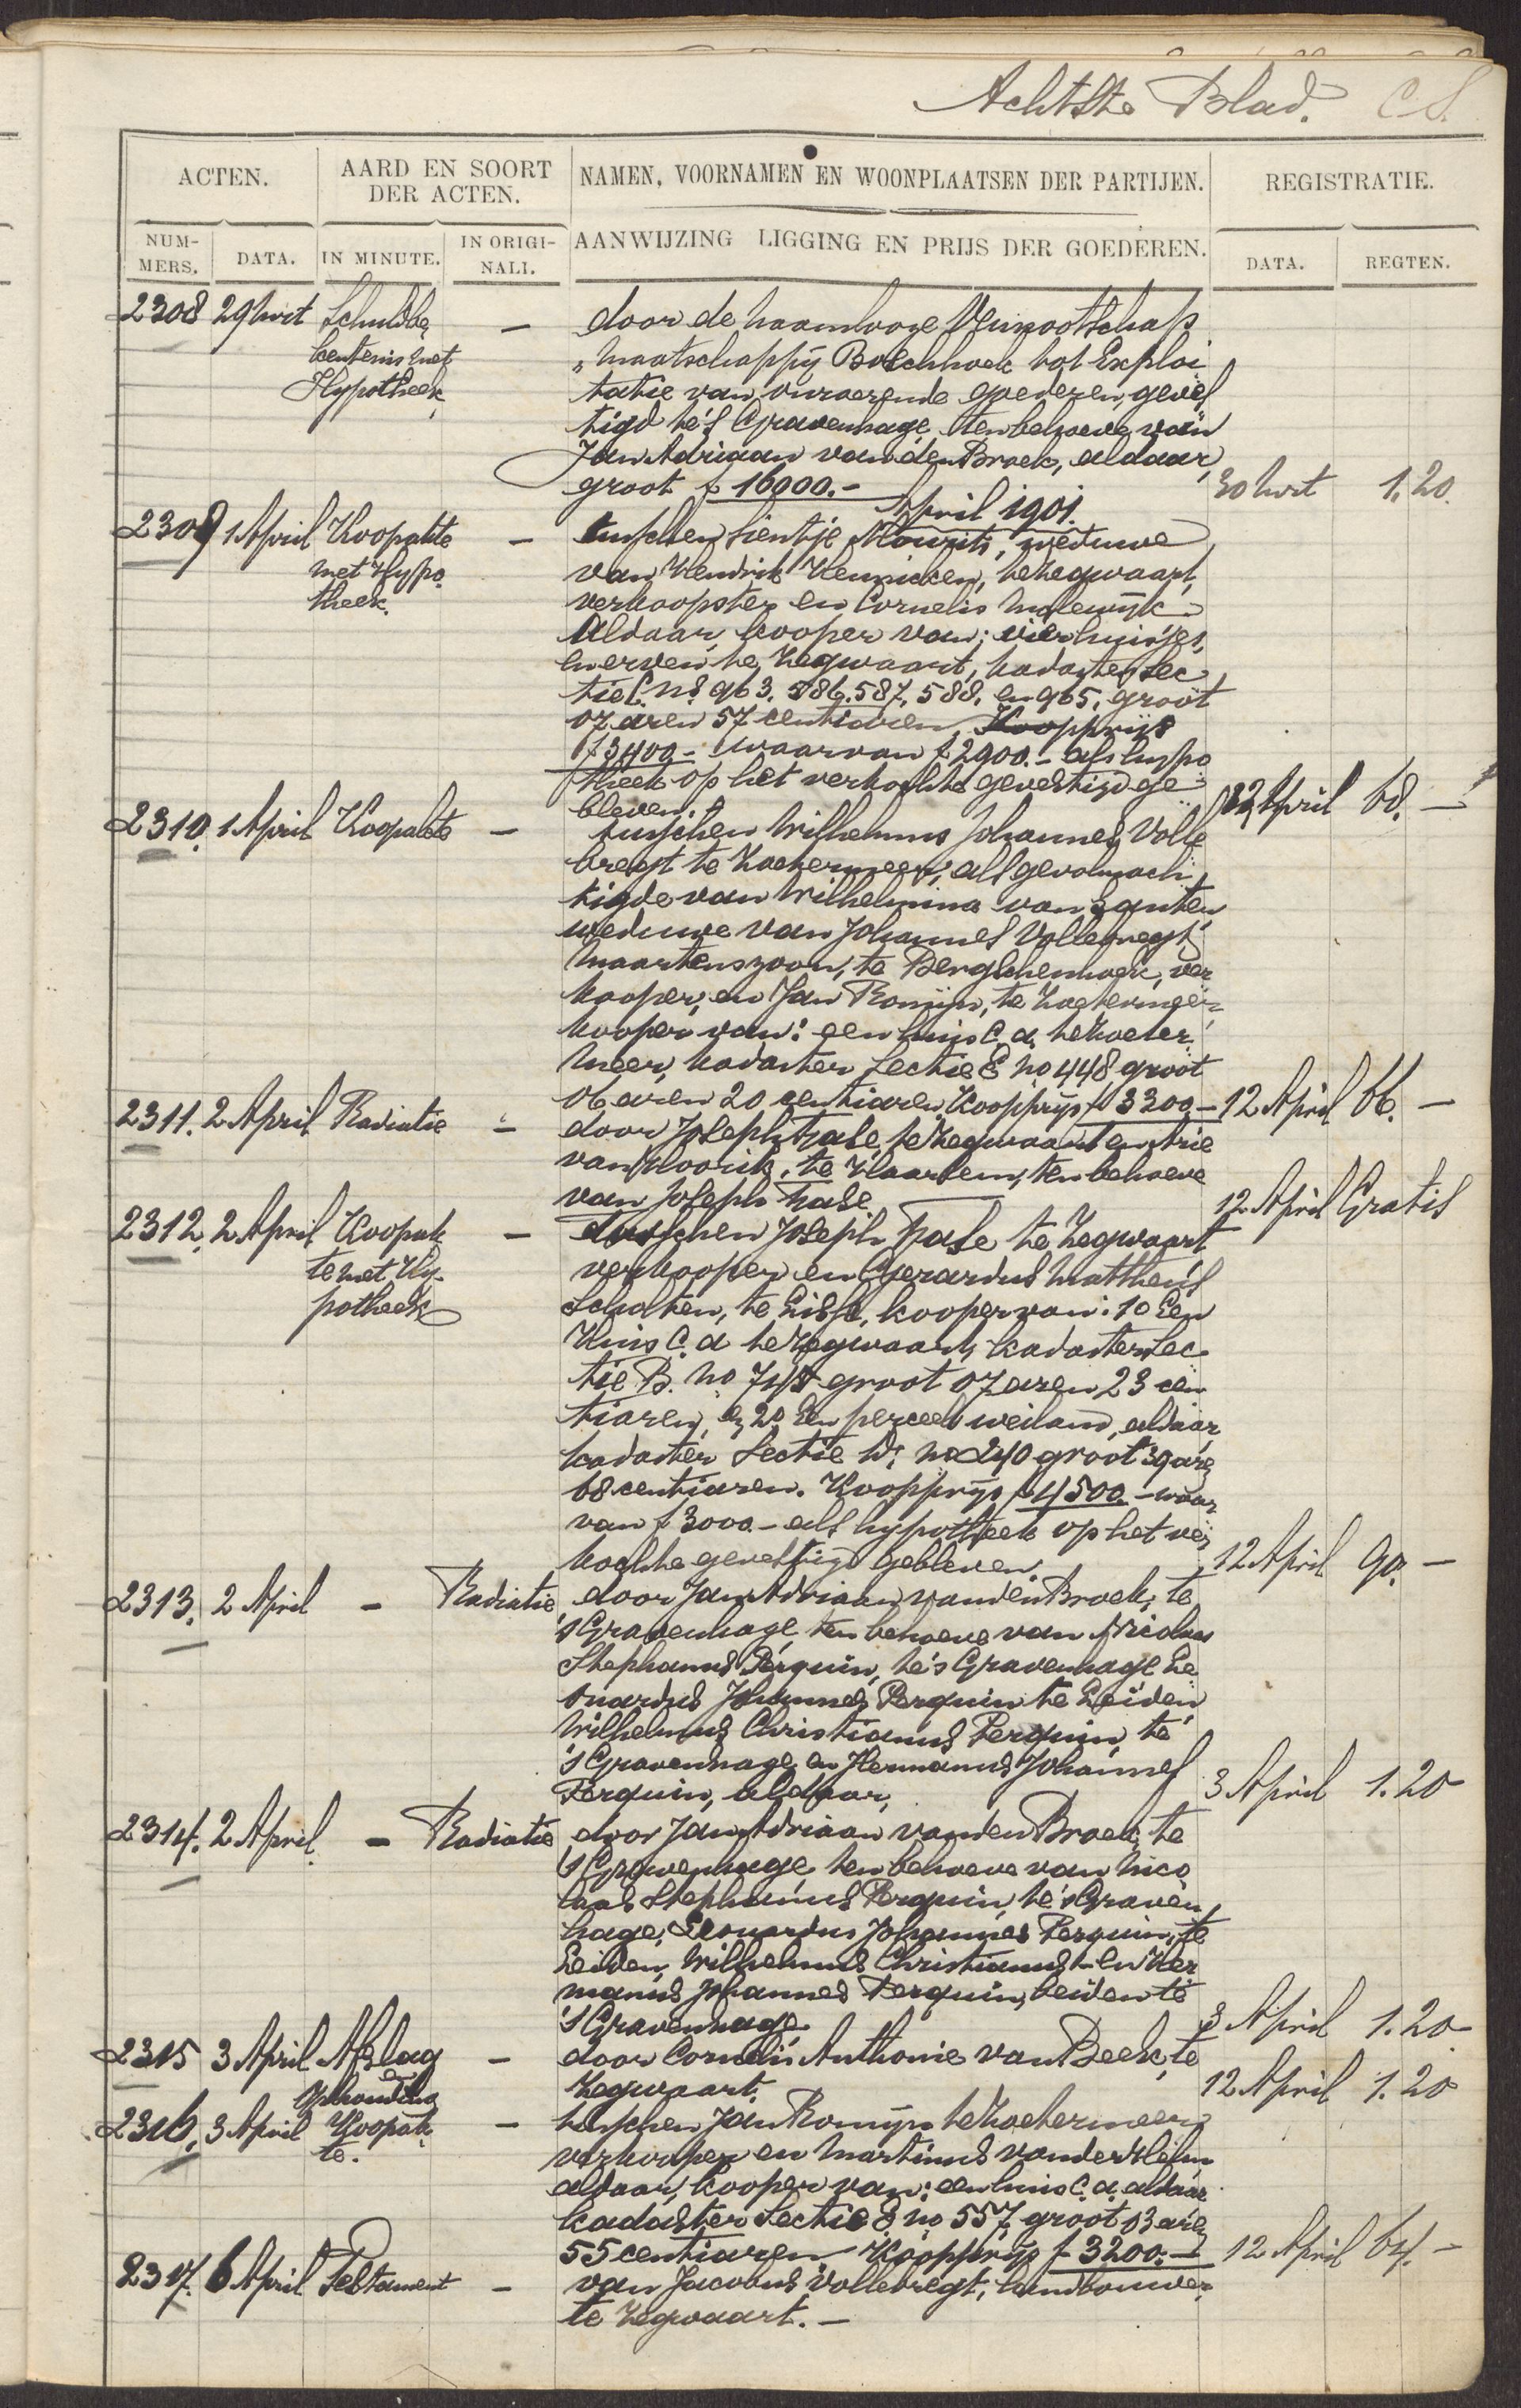 Achtste Blad. C S.
ACTEN. AARD EN SOORT DER ACTEN. NAMEN, VOORNAMEN EN WOONPLAATSEN DER PARTIJEN. REGISTRATIE.
NUMMERS. DATA. IN MINUTE. IN ORIGINALI. AANWIJZING LIGGING EN PRIJS DER GOEDEREN. DATA. REGTEN.
2308 29 Mrt Schuldbe — door de naamlooze Vennootschap
kentenis met „Maatschappij Boschhoek tot Exploi
Hypotheek tatie van onroerende goederen, geves
tigd te 's Gravenhage ten behoeve van
Jan Adriaan van den Broek, aldaar,
groot f 16000.- 30 Mrt 1.20.
April 1901.
2309 1 April Koopakte — tusschen Sientje Mourits, weduwe
met Hypo van Hendrik Hennicken, te Zegwaart,
theek. verkoopster en Cornelis Molewijk
Aldaar, kooper van: vier huisjes
en erven te Zegwaart, kadaster Sec
tie C. Nos 963. 586. 587, 588. en 965, groot
07 aren 57 centiaren, Koopprijs
f 3400.- waarvan f 2900.- als hypo
theek op het verkochte gevestigd ge
bleven. 12 April 68. —
2310. 1 April Koopakte — tusschen Wilhelmus Johannes Volle
bregt te Zoetermeer, als gevolmach
tigde van Wilhelmina van Santen
weduwe van Johannes Vollebregt
Maartenszoon, te Bergschenhoek, ver
kooper, en Jan Romijn, te Zoetermeer,
kooper van: een huis c. a. te Zoeter
meer, kadaster Sectie E no 448 groot
06 aren 20 centiaren Koopprijs f 3300.- 12 April 66. —
2311. 2 April Radiatie — door Joseph Hase, te Zegwaart en Arie
van Hoorik, te Haarlem, ten behoeve
van Joseph Hase 12 April Gratis
2312. 2 April Koopak — tusschen Joseph Hase te Zegwaart
te met Hy- verkooper en Gerardus Mattheus
potheek Scholten, te Lisse, kooper van: 1o Een
Huis C. a te Zegwaart, kadaster Sec
tie B. no groot 07 aren 23 cen
tiaren, en 2o Een perceel weiland, aldaar,
kadaster Sectie no 240 groot 39 aren
68 centiaren. Koopprijs f 4500.- waar
van f 3000.- als hypotheek op het ver
kochte gevestigd gebleven. 12 April 90. —
2313. 2 April — Radiatie door Jan Adriaan van den Broek, te
's Gravenhage, ten behoeve van Nicolaas
Stephanus Perquin, te 's Gravenhage Le
onardus Johannes Perquin te Leiden
Wilhelmus Christianus Perquin, te
's Gravenhage en Hermanus Johannes
Perquin, aldaar, 3 April 1.20
2314. 2 April. — Radiatie door Jan Adriaan van den Broek, te
's Gravenhage, ten behoeve van Nico
laas Stephanus Perquin, te 's Graven
hage, Leonardus Johannes Perquin, te
Leiden, Wilhelmus Christianus en Her
manus Johannes Perquin, beiden te
's Gravenhage. 3 April 1.20
2315 3 April Afslag — door Cornelis Anthonie van Beek, te
en Ophouding Zegwaart. 12 April 1.20
2316. 3 April Koopak — tusschen Jan Romijn te Zoetermeer
te. verkooper en Martinus van der Helm
aldaar, kooper van: een huis c. a. aldaar
kadaster Sectie E no 557 groot 03 aren
55 centiaren Koopprijs f 3200.- 12 April 64. —
2317. 6 April Testament — van Jacobus Vollebregt, landbouwer,
te Zegwaart. —